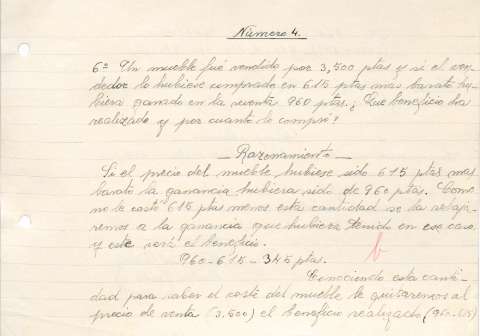 Número 4.
6º Un mueble fué vendido por 3,500 ptas y si el ven-
dedor lo hubiese comprado en 615 ptas mas barato hu-
biera ganado en la venta 960 ptas. ¿Que beneficio ha
realizado y por cuanto lo compró?
Razonamiento
Si el precio del mueble hubiese sido 615 ptas mas
barato la ganancia hubiera sido de 960 ptas. Como
no le costó 615 ptas menos esta cantidad se la rebaja-
remos a la ganancia que hubiera tenido en ese caso
y este será el beneficio.
960-615-345 ptas.
b
Conociendo esta canti-
dad para saber el coste del mueble le quitaremos al
precio de venta (3,500) el beneficio realizado (960-615)